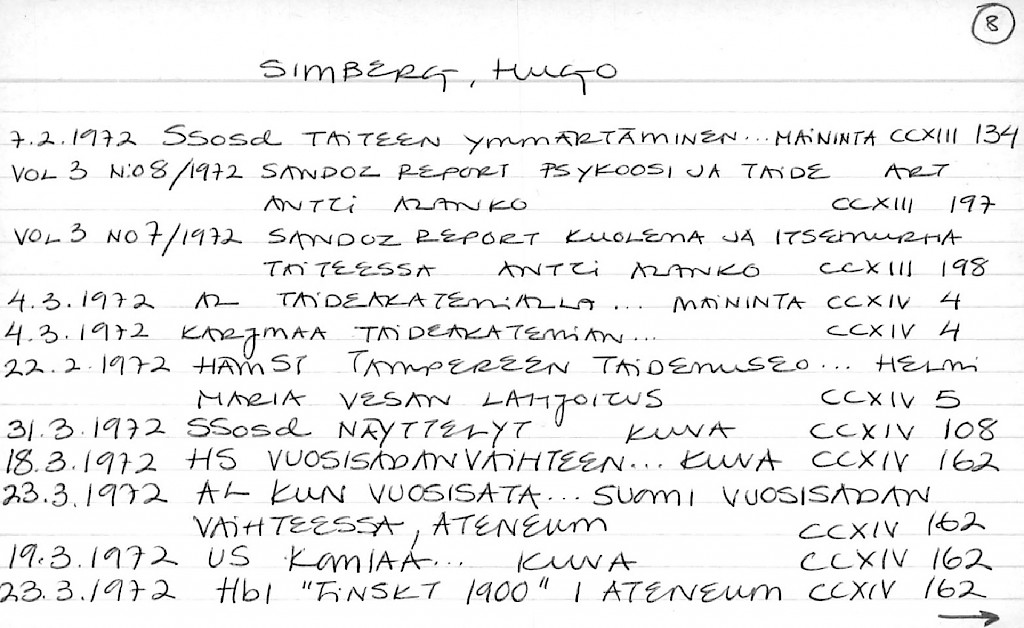 8
SIMBERG, HUGO
7.2.1972 SSosd TAITEEN YMMÄRTÄMINEN... MAININTA CCXIII 134
VOL 3 N:O 8/1972 SANDOZ REPORT PSYKOOSI JA TAIDE ART
ANTTI ALANKO CCXIII 197
VOL 3 NO 7/1972 SANDOZ REPORT KUOLEMA JA ITSEMURHA
TAITEESSA ANTTI ALANKO CCXIII 198
4.3.1972 AL TAIDEAKATEMIALLA... MAININTA CCXIV 4
4.3.1972 KARJMAA TAIDEAKATEMIAN... CCXIV 4
22.2.1972 HÄMST TAMPEREEN TAIDEMUSEO... HELMI
MARIA VESAN LAHJOITUS CCXIV 5
31.3.1972 SSosd NÄYTTELYT KUVA CCXIV 108
18.3.1972 HS VUOSISADANVAIHTEEN... KUVA CCXIV 162
23.3.1972 AL KUN VUOSISATA... SUOMI VUOSISADAN
VAIHTEESSA, ATENEUM CCXIV 162
19.3.1972 US KOMIAA... KUVA CCXIV 162
23.3.1972 Hbl "FINSKT 1900" I ATENEUM CCXIV 162
→